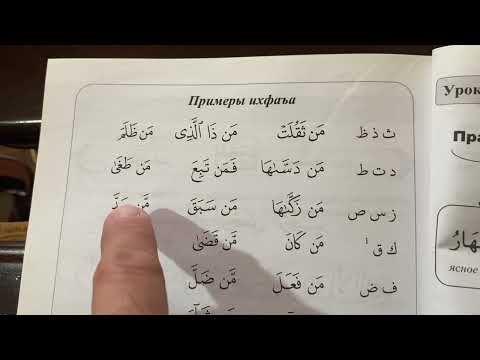 Примеры ихфаъа
ث ذ ظ مَن ثَقُلَتْ مَن ذَا ٱلَّذِى مَن ظَلَمَ
د ت ط مَن دَسَّىٰهَا فَمَن تَبِعَ مَن طَغَىٰ
ز س ص مَن زَكَّىٰهَا مَن سَبَقَ
ك ق ¹ مَن كَانَ مَّن قَضَىٰ
ف ض مَن فَعَلَ مَّن ضَلَّ
Урок
Пра
هَارُ
ясное